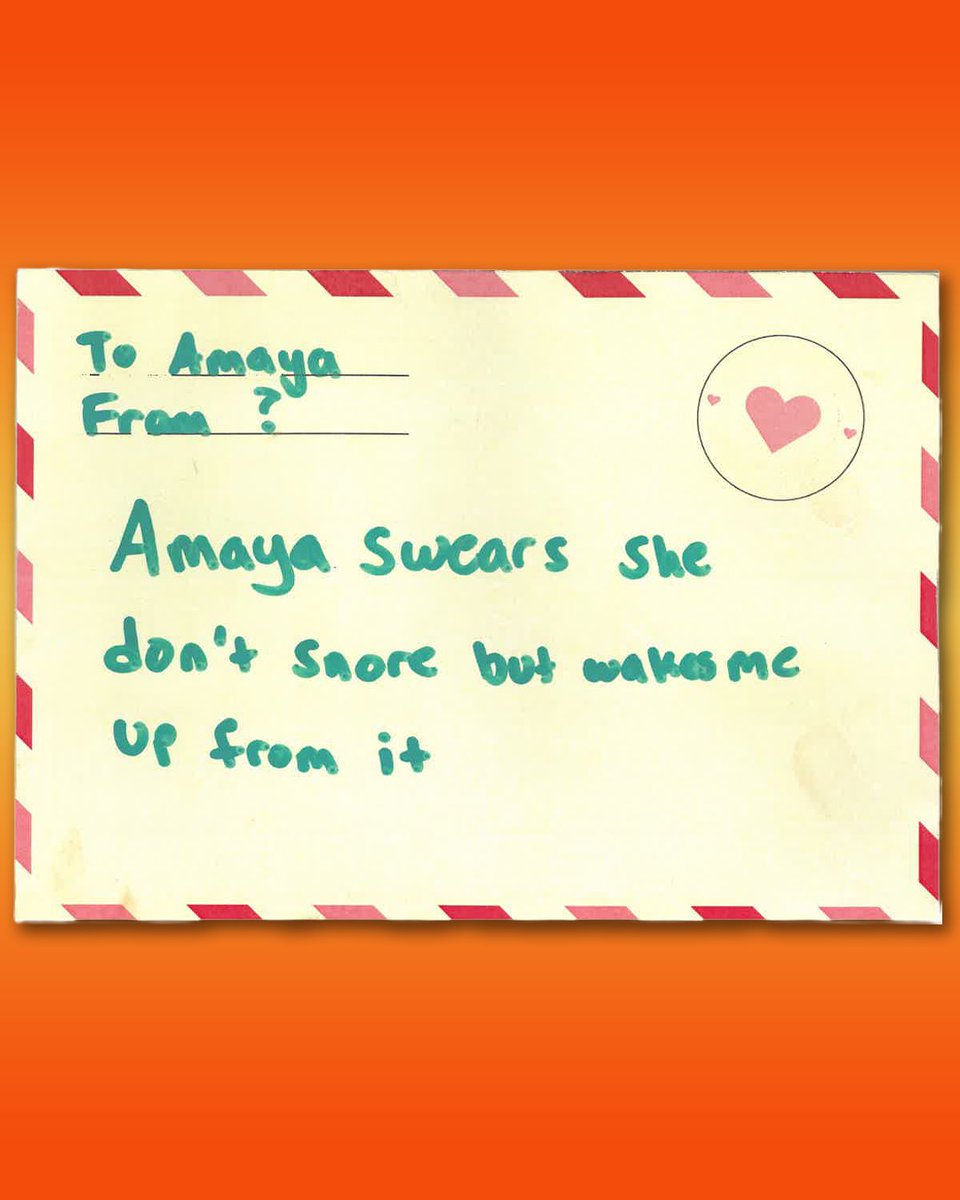 To Amaya
From ?
Amaya swears she
don't snore but wakes me
up from it